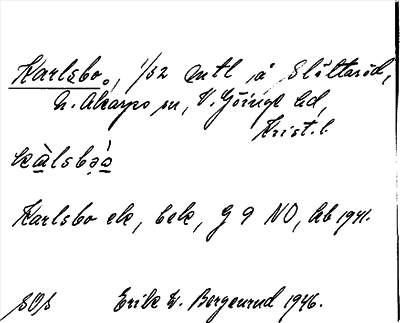 Karlsbo, 1/32 mtl å Slättaröd,
N. Åkarps sn, V. Göinge hd,
Krist. l.
Karlsbo ek, bek, G 9 NO, Ab 1941.
SOS Erik W. Borgenrud 1946.